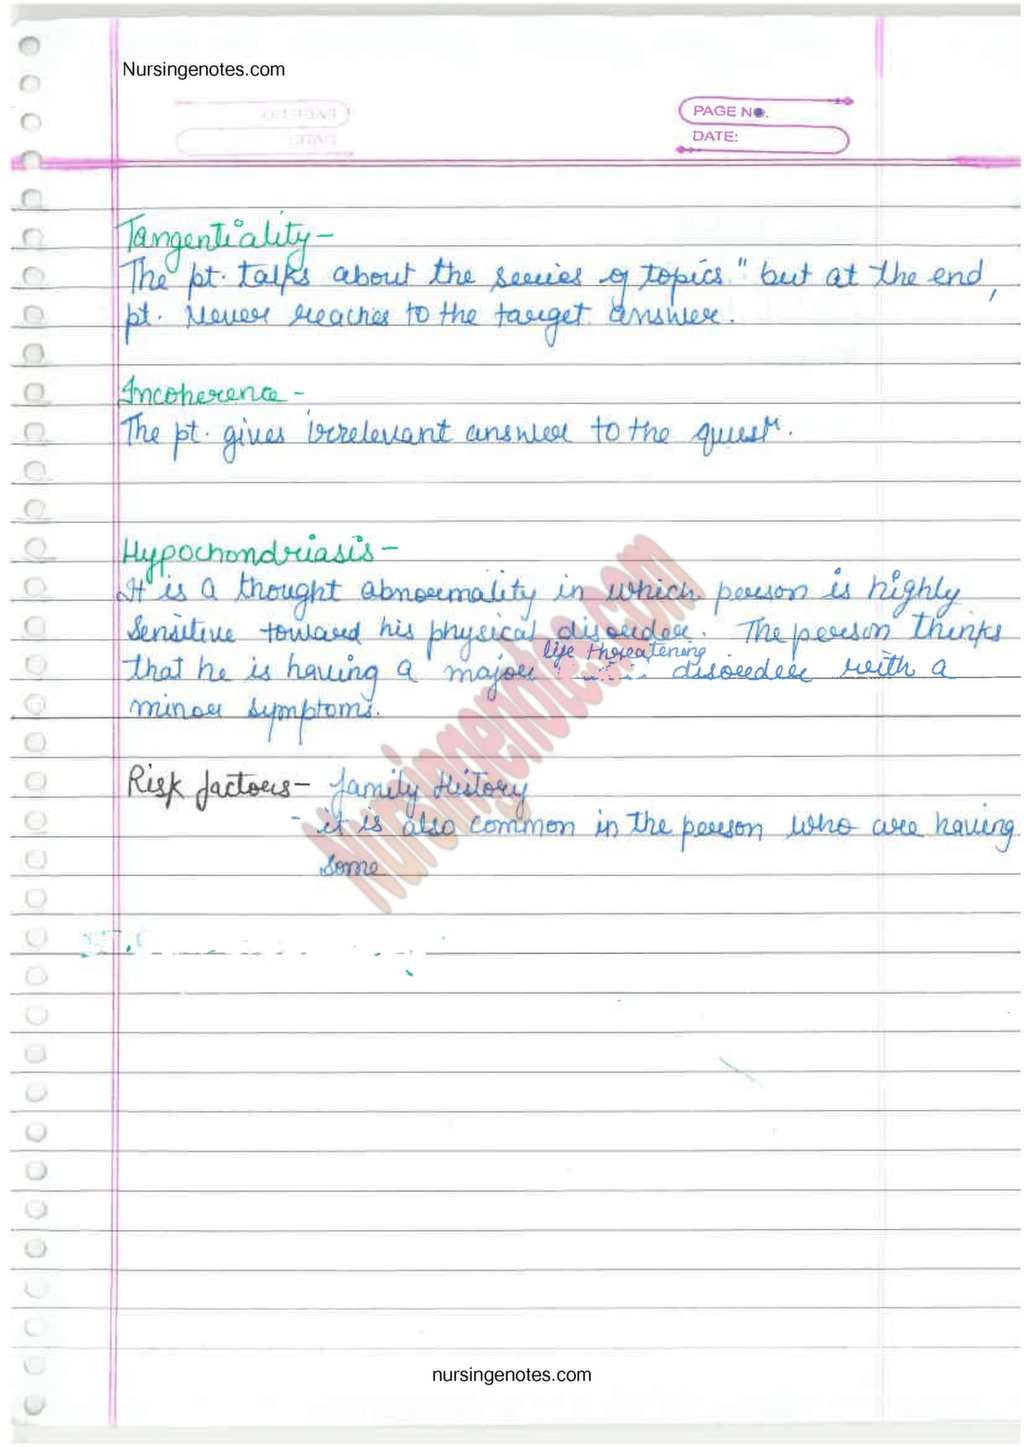 Nursingenotes.com
PAGE NO.
DATE:
Tangentiality -
The pt. talks about the series of topics " but at the end,
pt. Never reaches to the target answer.
Incoherence -
The pt. gives irrelevant answer to the questn.
Hypochondriasis -
It is a thought abnormality in which person is highly
sensitive toward his physical disorder. The person thinks
life threatening
that he is having a major disorder with a
minor symptoms.
Risk factors - family History
- it is also common in the person who are having
some
Nursingenotes.com
nursingenotes.com